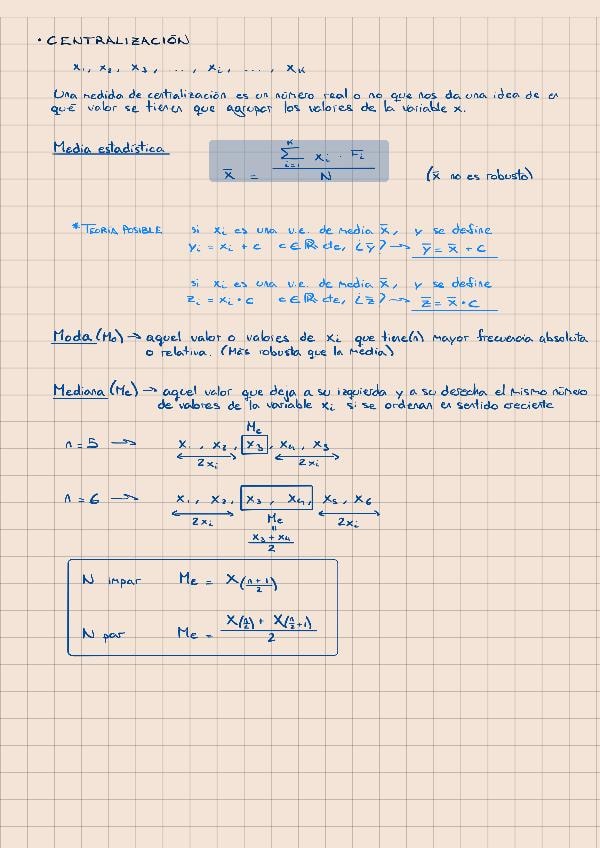 · CENTRALIZACIÓN
x₁, x₂, x₃, ..., xᵢ, ..., xₖ
Una medida de centralización es un número real o no que nos da una idea de en
qué valor se tienen que agrupar los valores de la variable x.
Media estadística x̄ = (∑ᵢ₌₁ᴷ xᵢ · Fᵢ) / N (x̄ no es robusto)
* TEORÍA POSIBLE si xᵢ es una v.e. de media x̄, y se define
yᵢ = xᵢ + c c∈ℝ cte, ¿ȳ? → ȳ = x̄ + c
si xᵢ es una v.e. de media x̄, y se define
zᵢ = xᵢ · c c∈ℝ cte, ¿z̄? → z̄ = x̄ · c
Moda (Mo) → aquel valor o valores de xᵢ que tiene(n) mayor frecuencia absoluta
o relativa. (Más robusta que la media)
Mediana (Me) → aquel valor que deja a su izquierda y a su derecha el mismo número
de valores de la variable xᵢ si se ordenan en sentido creciente
Me
n = 5 → x₁, x₂, x₃, x₄, x₅
2xᵢ 2xᵢ
n = 6 → x₁, x₂, x₃, x₄, x₅, x₆
2xᵢ Me 2xᵢ
=
(x₃ + x₄) / 2
N impar Me = X((n+1)/2)
N par Me = (X(n/2) + X(n/2+1)) / 2